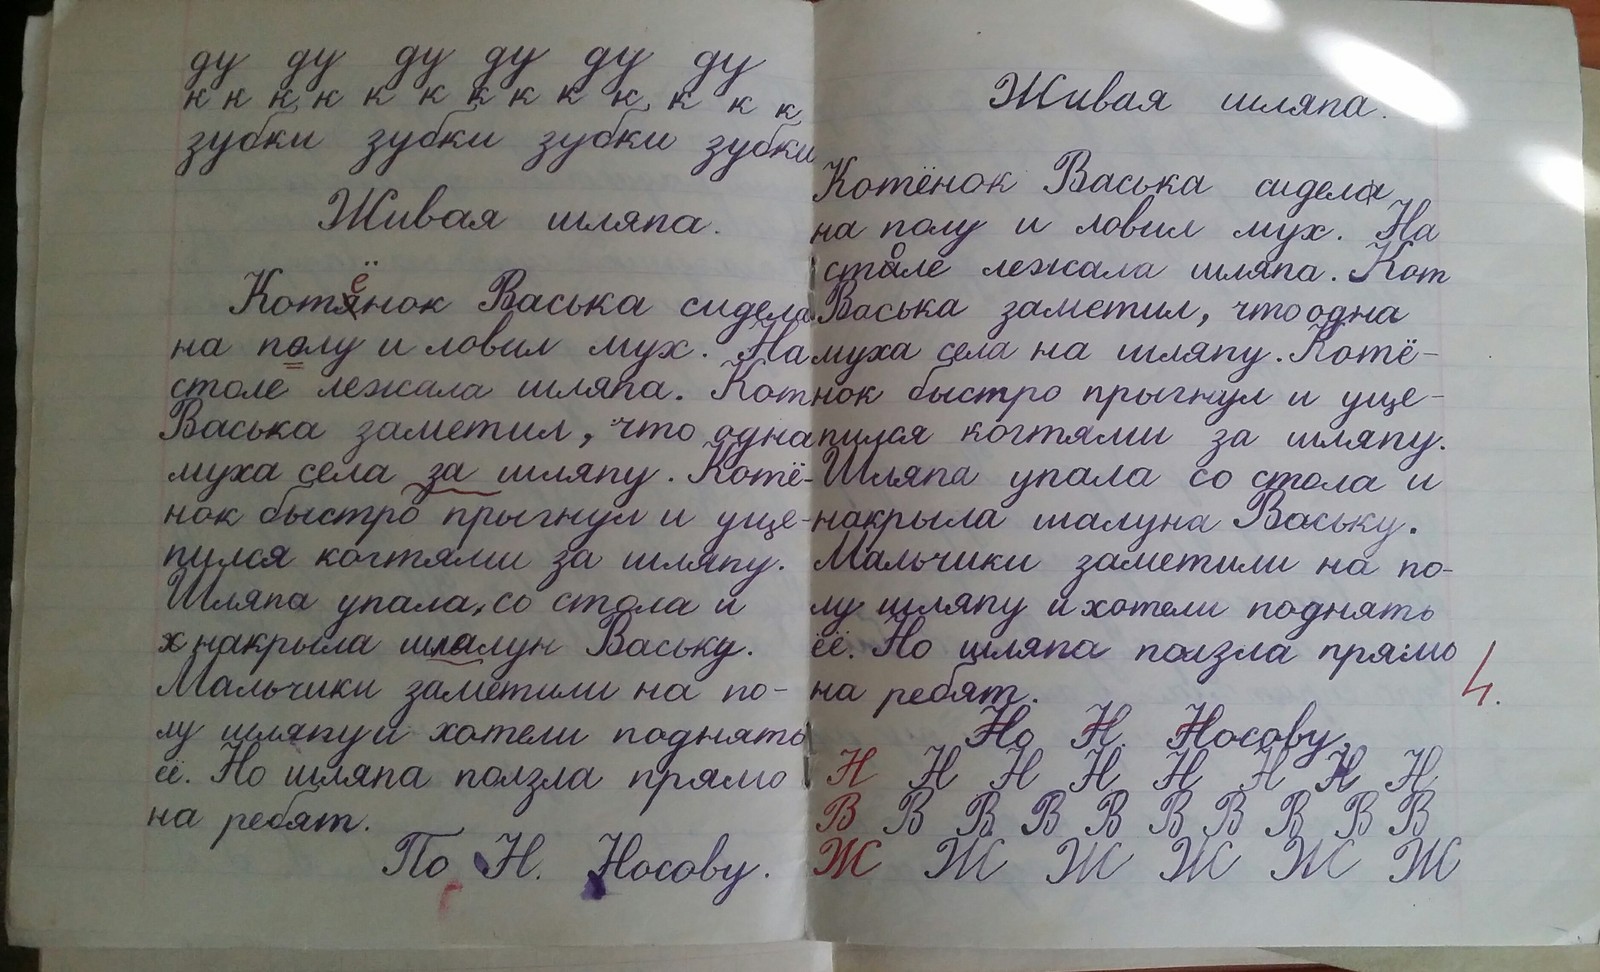 ду ду ду ду ду ду
к к к к к к к к к к к к к
зубки зубки зубки зубки
Живая шляпа.
Котёнок Васька сидела
на полу и ловил мух. На
столе лежала шляпа. Кот
Васька заметил, что одна
муха села за шляпу. Котё-
нок быстро прыгнул и уце-
пился когтями за шляпу.
Шляпа упала, со стола и
х накрыла шлалун Ваську.
Мальчики заметили на по-
лу шляпу и хотели поднять
её. Но шляпа ползла прямо
на ребят.
По Н. Носову.
Живая шляпа.
Котёнок Васька сидела
на полу и ловил мух. На
столе лежала шляпа. Кот
Васька заметил, что одна
муха села на шляпу. Котё-
нок быстро прыгнул и уце-
пился когтями за шляпу.
Шляпа упала со стола и
накрыла шалуна Ваську.
Мальчики заметили на по-
лу шляпу и хотели поднять
её. Но шляпа ползла прямо
на ребят.
4.
Но Н. Носову.
Н Н Н Н Н Н Н Н
В В В В В В В В В В
Ж Ж Ж Ж Ж Ж